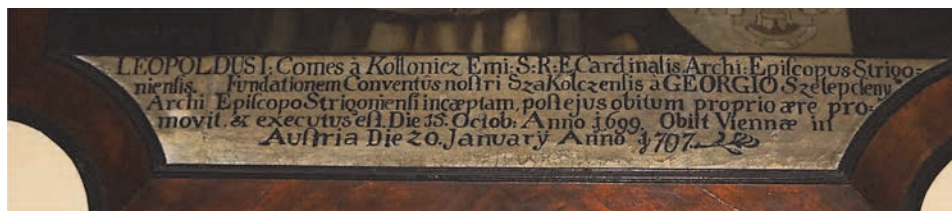 LEOPOLDUS I: Comes à Kollonicz Emi: S: R: E Cardinalis, Archi: Episcopus Strigo-
niensis. Fundationem Conventûs nostri SzaKolczensis à GEORGIO Szelepcleny
Archi EpiscopoStrigoniensi incæptam, post ejus obitum proprio ære pro-
movit. & executus est. Die 15. Octob: Anno 1699. Obiit Viennæ in
Austria Die 20. January Anno 1707.